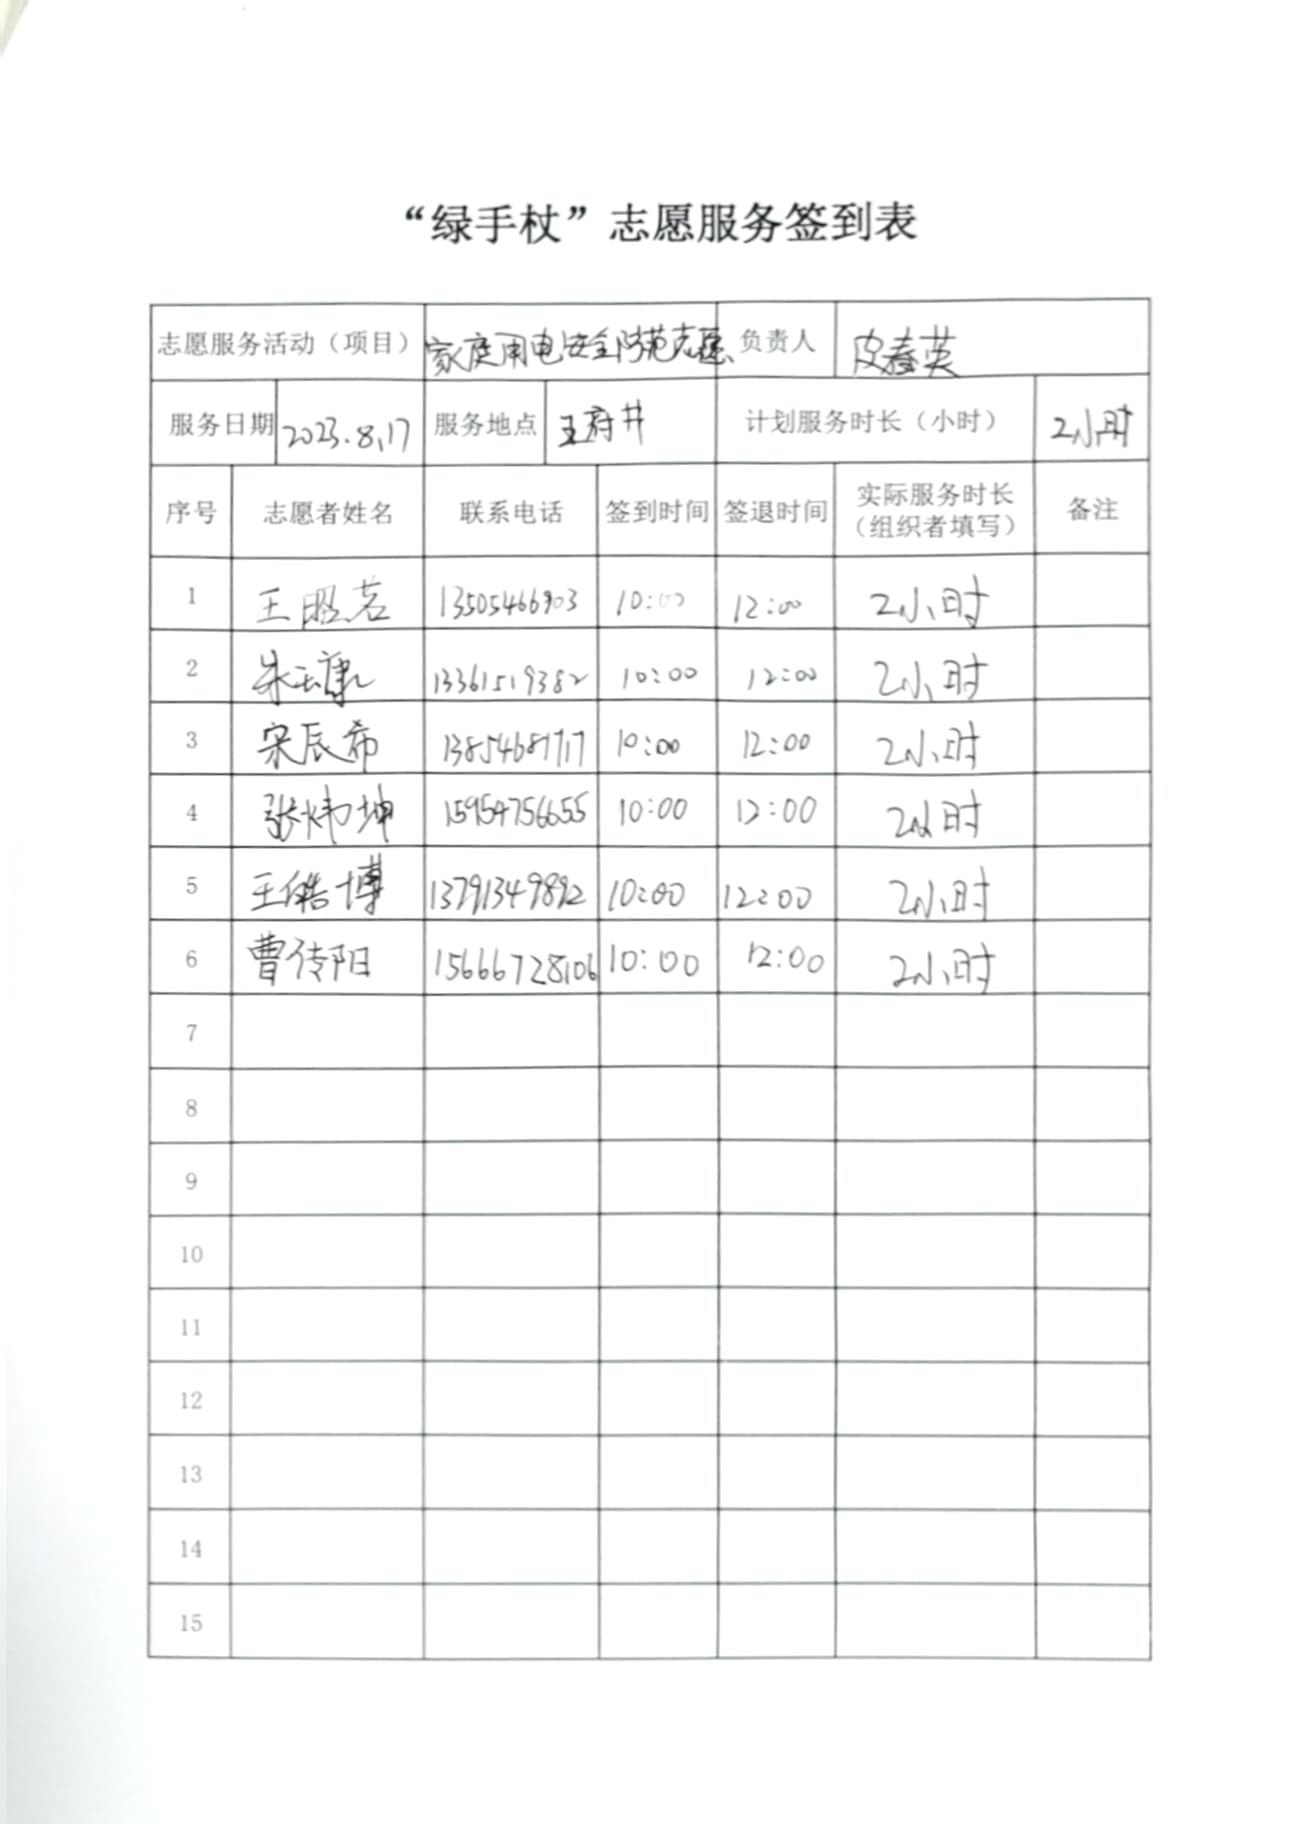 “绿手杖”志愿服务签到表
志愿服务活动（项目） 家庭用电安全防范志愿 负责人 皮春英
服务日期 2023.8.17 服务地点 王府井 计划服务时长（小时） 2小时
序号 志愿者姓名 联系电话 签到时间 签退时间 实际服务时长（组织者填写） 备注
1 王昭茗 13505466903 10:00 12:00 2小时
2 朱玉康 13361519382 10:00 12:00 2小时
3 宋辰希 13854681717 10:00 12:00 2小时
4 张炜坤 15954756655 10:00 12:00 2小时
5 王皓博 13791349892 10:00 12:00 2小时
6 曹传阳 15666728106 10:00 12:00 2小时
7
8
9
10
11
12
13
14
15